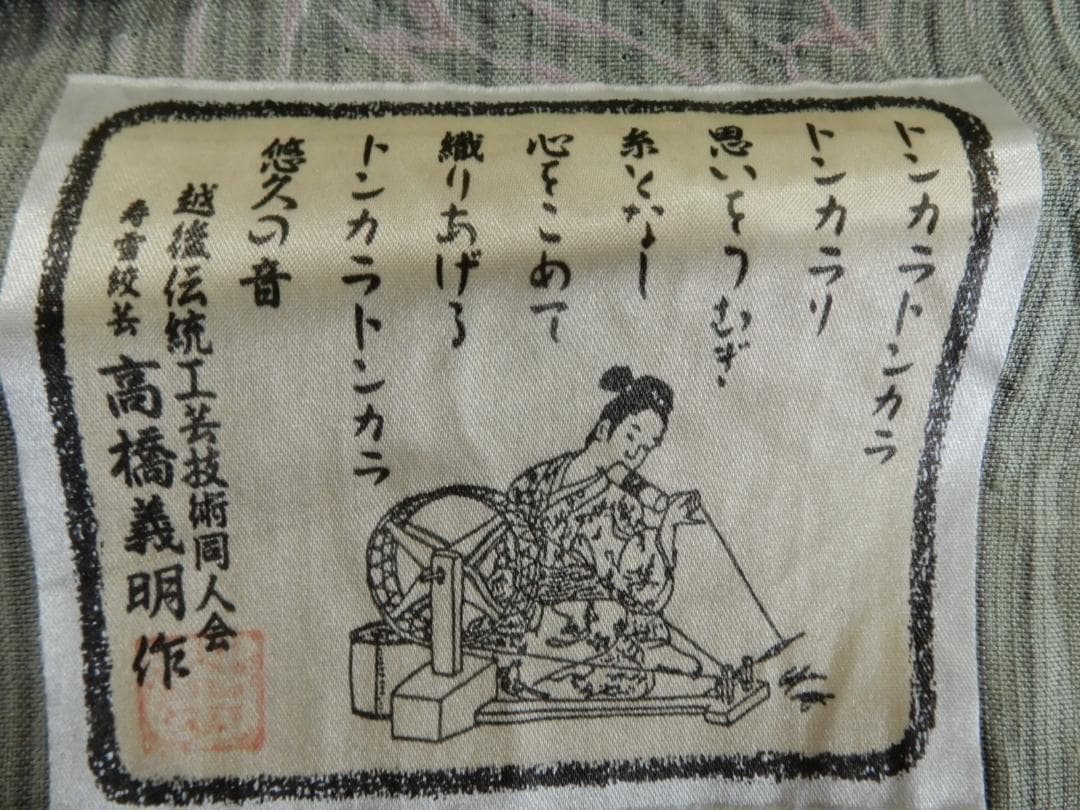 トンカラトンカラ
トンカラリ
思いをつむぎ
糸となし
心をこめて
織りあげる
トンカラトンカラ
悠久の音
越後伝統工芸技術同人会
寿雪絞芸 高橋義明作